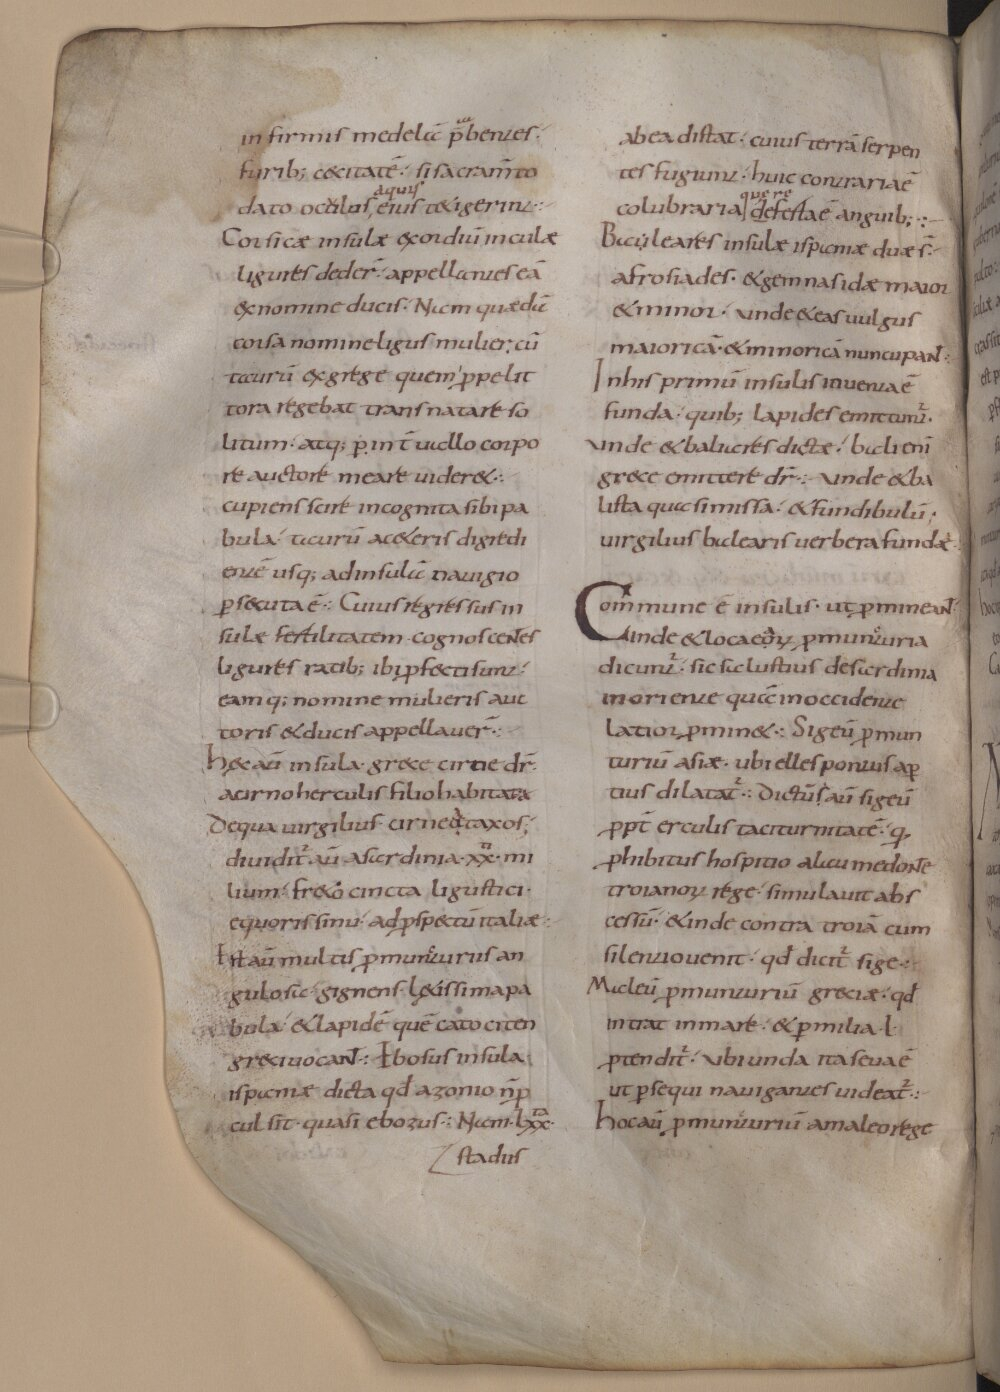 infirmis medelā p̄benτes·
furib; cecitatē· si sacram̄to
dato oculos aquis eius tetigerinτ·:
Corsicæ insulæ exordiū incolæ
ligures deder̄· appellanτes eā
ex nomine ducis· Nam quædā
corsa nomine ligus mulier, cū
taurū ex grege quem ꝓpe lit
tora regebat trans natare so
litum· atq; ꝑ inτ̄uallo corpo
re auctore meare uideret·:
cupiens scire incognita sibi pa
bula· taurū a ceteris digredi
entē usq; ad insulā nauigio
ꝑsecuta ē·: Cuius regressus in
sulæ fertilitatem· cognoscentes
ligures ratib; ibi ꝓfecti sunτ·
eamq; nomine mulieris auc
toris et ducis appellauer̄·:
hec aū insula grece cirne dr̄·
a cirno herculis filio habitata
De qua uirgilius· cirneas taxos;
diuidit̄ aū a sardinia· xx· mi
lium· freto cincta ligustici·
equoris sinu· ad ꝓspectū italiæ·
Est aū multis ꝓmunτuriis an
gulosa· gignens letissima pa
bula· et lapidē quē catociten
greci uocant·: Ebosus insula
ispaniæ dicta qd̄ a zonio n̄ ꝓ
cul sit· quasi ebozus·: Nam· lxx·
stadiis
ab ea distat· cuius terrā serpen
tes fugiunτ· huic conτraria ē
colubraria quere defesta ē anguib;·:
Baleares insulæ ispaniæ duæ s̄·
afrosiades· et gemnasidæ maior
et minor· unde et eas uulgus
maioricā· et minoricā nuncupant·
In his primū insulis inuenτa ē
funda· quib; lapides emittunτ̄·
unde et baleares dictæ· balieni
grece emittere dr̄·: unde et ba
lista quasi missa· et fundibulū;
uirgilius balearis uerbera fundæ·
Commune ē insulis· ut ꝓmineant·
Vnde et loca eoꝝ ꝓmunτuria
dicunτ̄· sic salustius de sardinia
in orienτe quā in occidenτe
latior ꝓminet·: Sigeū ꝓmun
turiū asiæ· ubi ellesponτus aꝑ
tius dilatat̄·: Dictūs aū sigeū
ꝓpt̄ erculis taciturnitatē· q,
ꝓhibitus hospitio a laumedonte
troianoꝝ rege· simulauit abs
cessū· et inde contra troiā cum
silenτio uenit· qd̄ dicit̄ sige·:
Maleū ꝓmunτuriū greciæ· qd̄
intrat in mare· et ꝑ milia· l·
ꝓtendit̄· ubi unda ita seua ē
ut ꝓsequi nauiganτes uideat̄·:
hoc aū ꝓmunτuriū a maleo rege